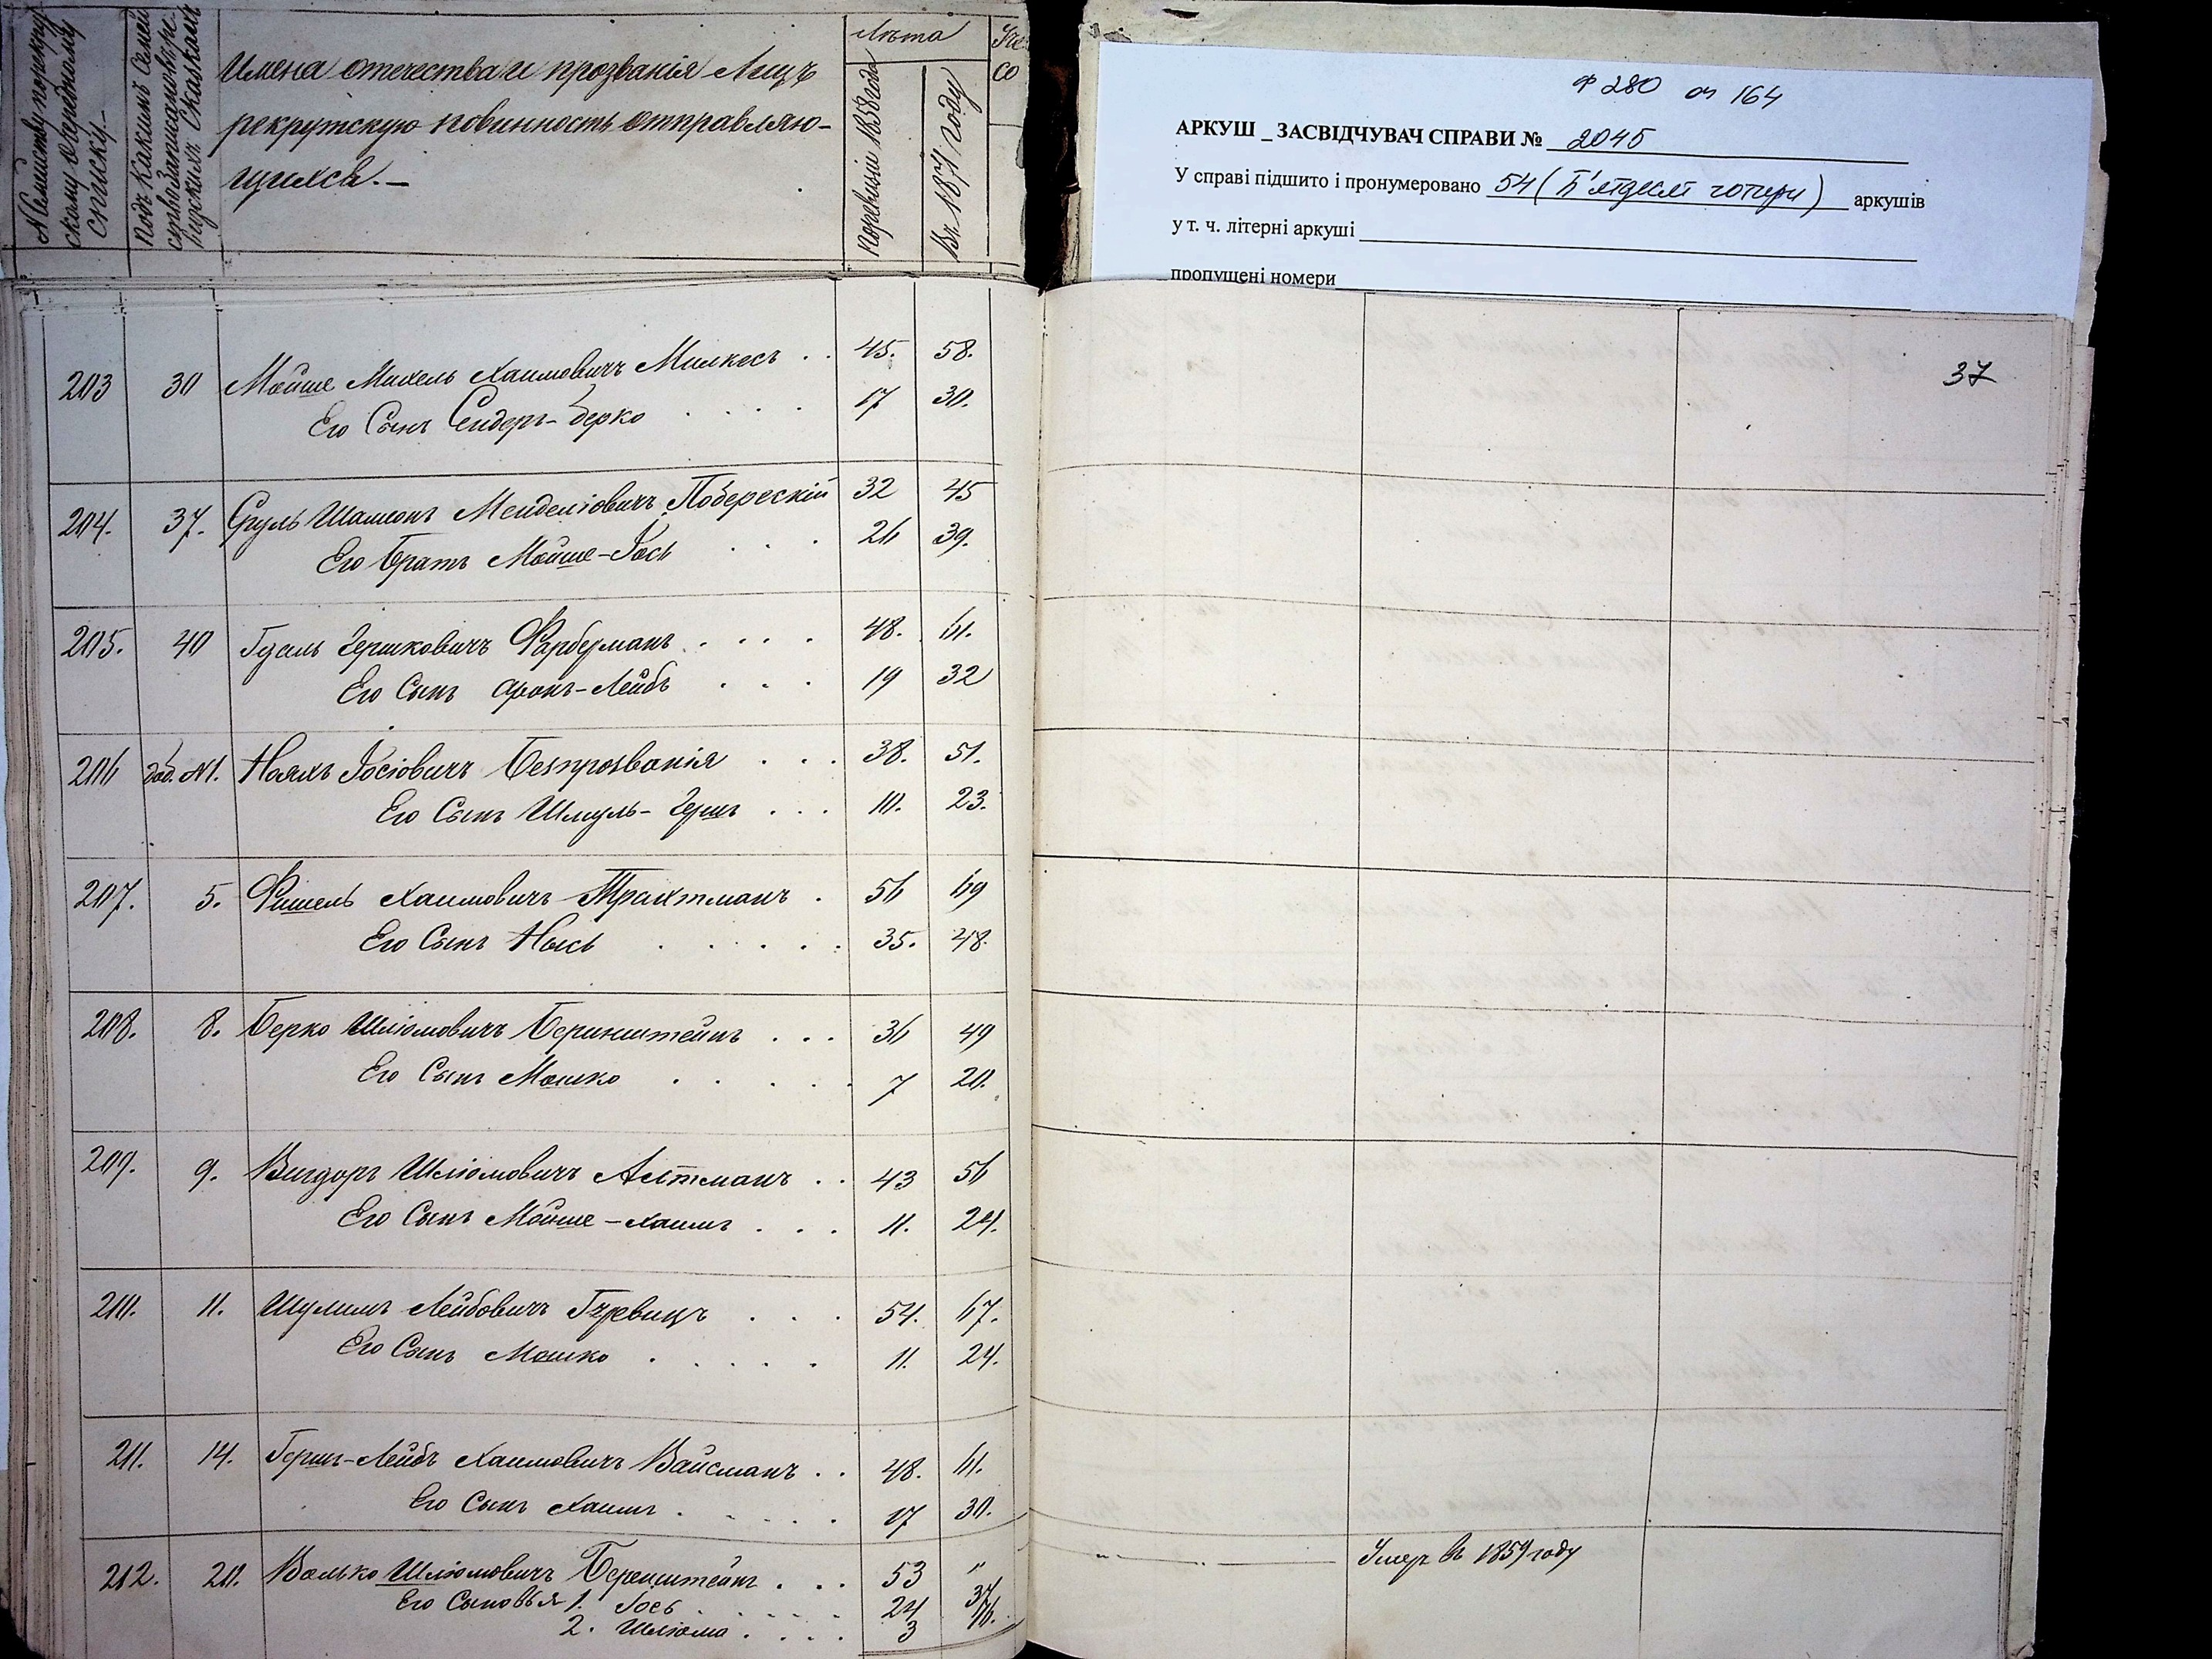 № Семейству по рекрут-
скому очередному
списку.—
Подъ какимъ Семей
ствомъ записанъ въ ре-
визскихъ Сказкахъ
Имена отечества и прозванія Лицъ
рекрутскую повинность отправляю-
щихся.—
Лѣта
По ревизіи 1858 года
Въ 1871 году
ф 280 оп 164
АРКУШ _ ЗАСВІДЧУВАЧ СПРАВИ № 2045
У справі підшито і пронумеровано 54 (П'ятдесят чотири) аркушів
у т. ч. літерні аркуші
пропущені номери
37
203 30 Мойше Михель Хаимовичъ Милкесъ . . 45. 58.
Его Сынъ Сендеръ-Берко . . . . 17 30.
204. 37. Сруль Шамсонъ Менделіовичъ Поберескій 32 45
Его Братъ Мойше-Іось . . . 26 39.
205. 40 Гдаль Гершковичъ Фарберманъ . . . . 48. 61.
Его Сынъ Аронъ-Лейбъ . . . 19 32
206 доб. №1. Нахмъ Іосіовичъ Безпрозванія . . . 38. 51.
Его Сынъ Шмуль-Гершъ . . . 10. 23.
207. 5. Фишель Хаимовичъ Трахтманъ . 56 69
Его Сынъ Нысь . . . . . 35. 48.
208. 8. Берко Шліомовичъ Беринштейнъ . . . 36 49
Его Сынъ Мошко . . . . . 7 20.
209. 9. Вигдоръ Шліомовичъ Алтманъ . . 43 56
Его Сынъ Мойше-Хаимъ . . . 11. 24.
210. 11. Шулимъ Лейбовичъ Гуревицъ . . . 54. 67.
Его Сынъ Мошко . . . . . 11. 24.
211. 14. Гершъ-Лейбъ Хаимовичъ Вайсманъ . . 48. 61.
Его Сынъ Хаимъ . . . . . 17 30.
212. 20. Волько Шліомовичъ Беренштейнъ . . . 53 " Умеръ въ 1859 году
Его Сыновья 1. Іось . . . . . 24 37
2. Шліома . . . . 3 16.